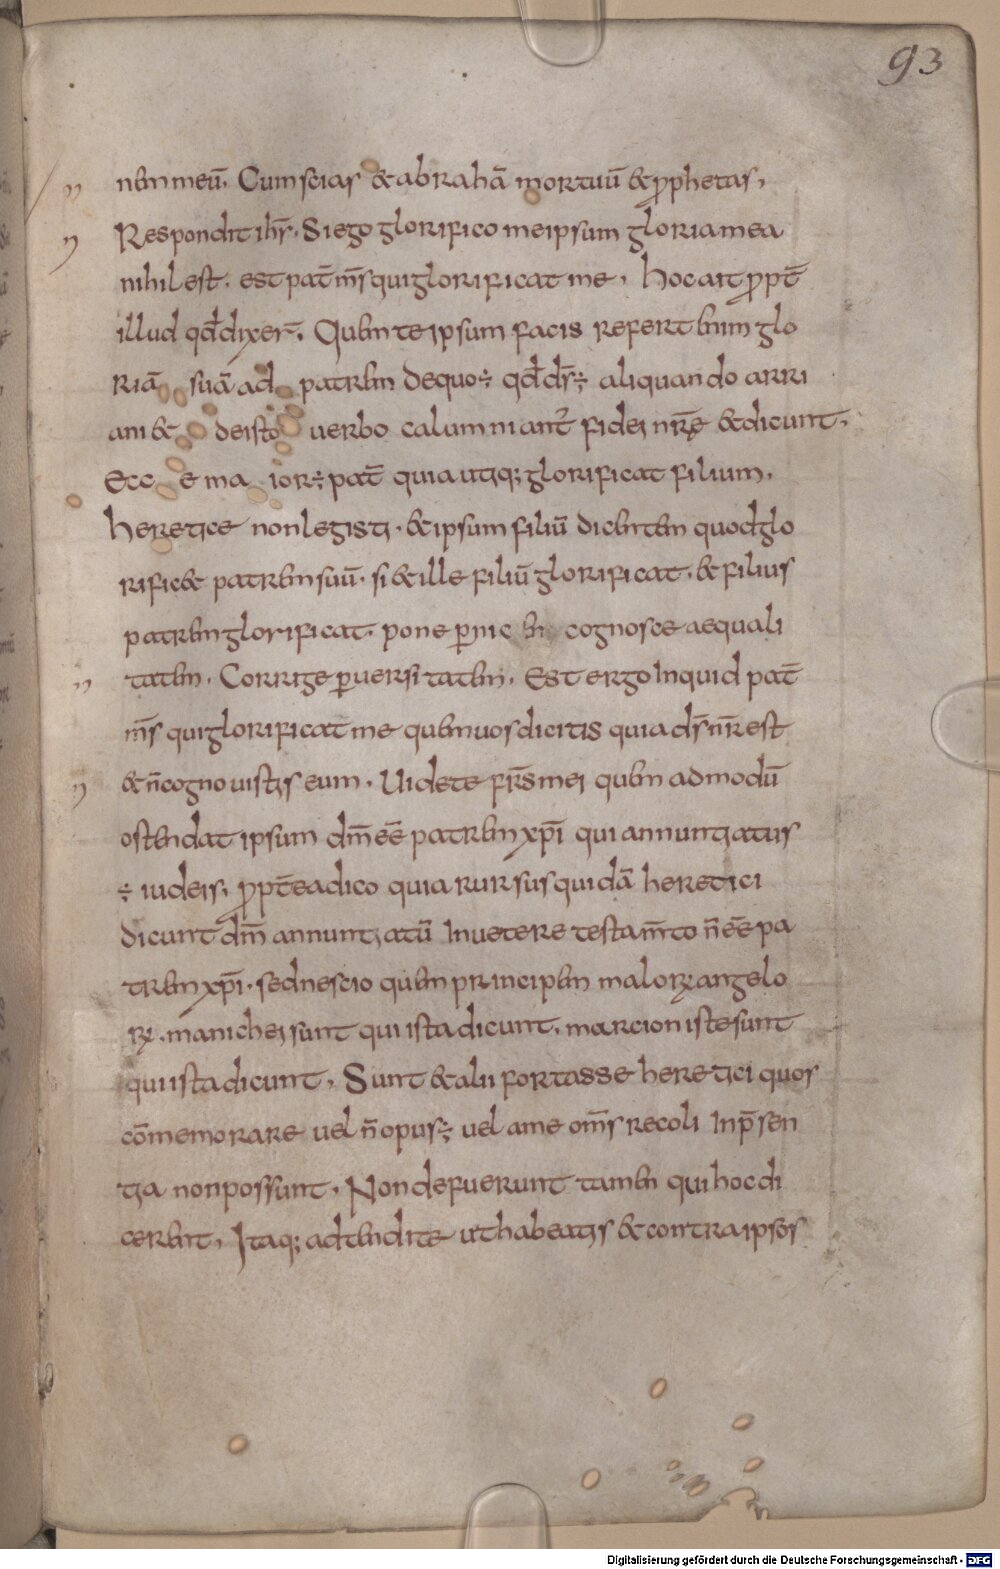 93
nem meū. Cum scias & abrahā mortuū & ꝓphetas,
Respondit ih̅s. Si ego glorifico me ipsum gloria mea
nihil est. est pat̄ m̄s qui glorificat me, hoc ait ꝓpt̄
illud qd̄ dixer̄. Quem te ipsum facis refert enim glo
riā suā ad patrem de quo ÷ qd̄ ds̄ ÷ aliquando arri
ani & de isto verbo calumniant̄ fidei nr̄ę & dicunt.
Ecce maior ÷ pat̄ quia utiq; glorificat filium.
heretice non legisti. & ipsum filiū dicentem quod glo
rific& patrem suū. si & ille filiū glorificat. & filius
patrem glorificat. pone ꝑnic em cognosce aequali
tatem. Corrige ꝑversitatem. Est ergo Inquid pat̄
m̄s qui glorificat me quem vos dicitis quia ds̄ nr̄ est
& n̄ cognovistis eum. Videte fr̄s mei quem admodū
ostendat ipsum dm̄ eē patrem xp̄i qui annuntiatus
÷ iudeis, ꝓpt̄ea dico quia rursus quidā heretici
dicunt dm̄ annuntiatū In vetere testam̄to n̄ eē pa
trem xp̄i. sed nescio quem principem maloꝝ angelo
rꝝ. manichei sunt qui ista dicunt. marcioniste sunt
qui ista dicunt. Sunt & alii fortasse heretici quos
cōmemorare vel n̄ opus ÷ vel a me om̄s recoli In p̄sen
tia non possunt. Non defuerunt tamen qui hoc di
cerent. Itaq; adtendite ut habeatis & contra ipsos
Digitalisierung gefördert durch die Deutsche Forschungsgemeinschaft - DFG